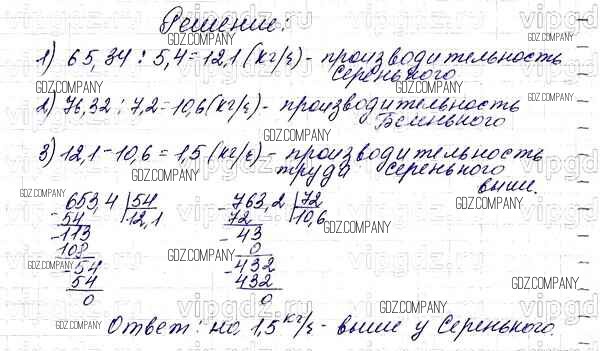 Решение:
1) 65,34 : 5,4 = 12,1 (кг/г) - производительность
Серенького
2) 76,32 : 7,2 = 10,6 (кг/г) - производительность
Беленького
3) 12,1 - 10,6 = 1,5 (кг/г) - производительность
труда Серенького
выше.
653,4 | 54
- 54 12,1
- 113
108
- 54
54
0
763,2 | 72
- 72 10,6
- 43
0
- 432
432
0
Ответ: на 1,5 кг/г - выше у Серенького.
GDZ.COMPANY
vipgdz.ru